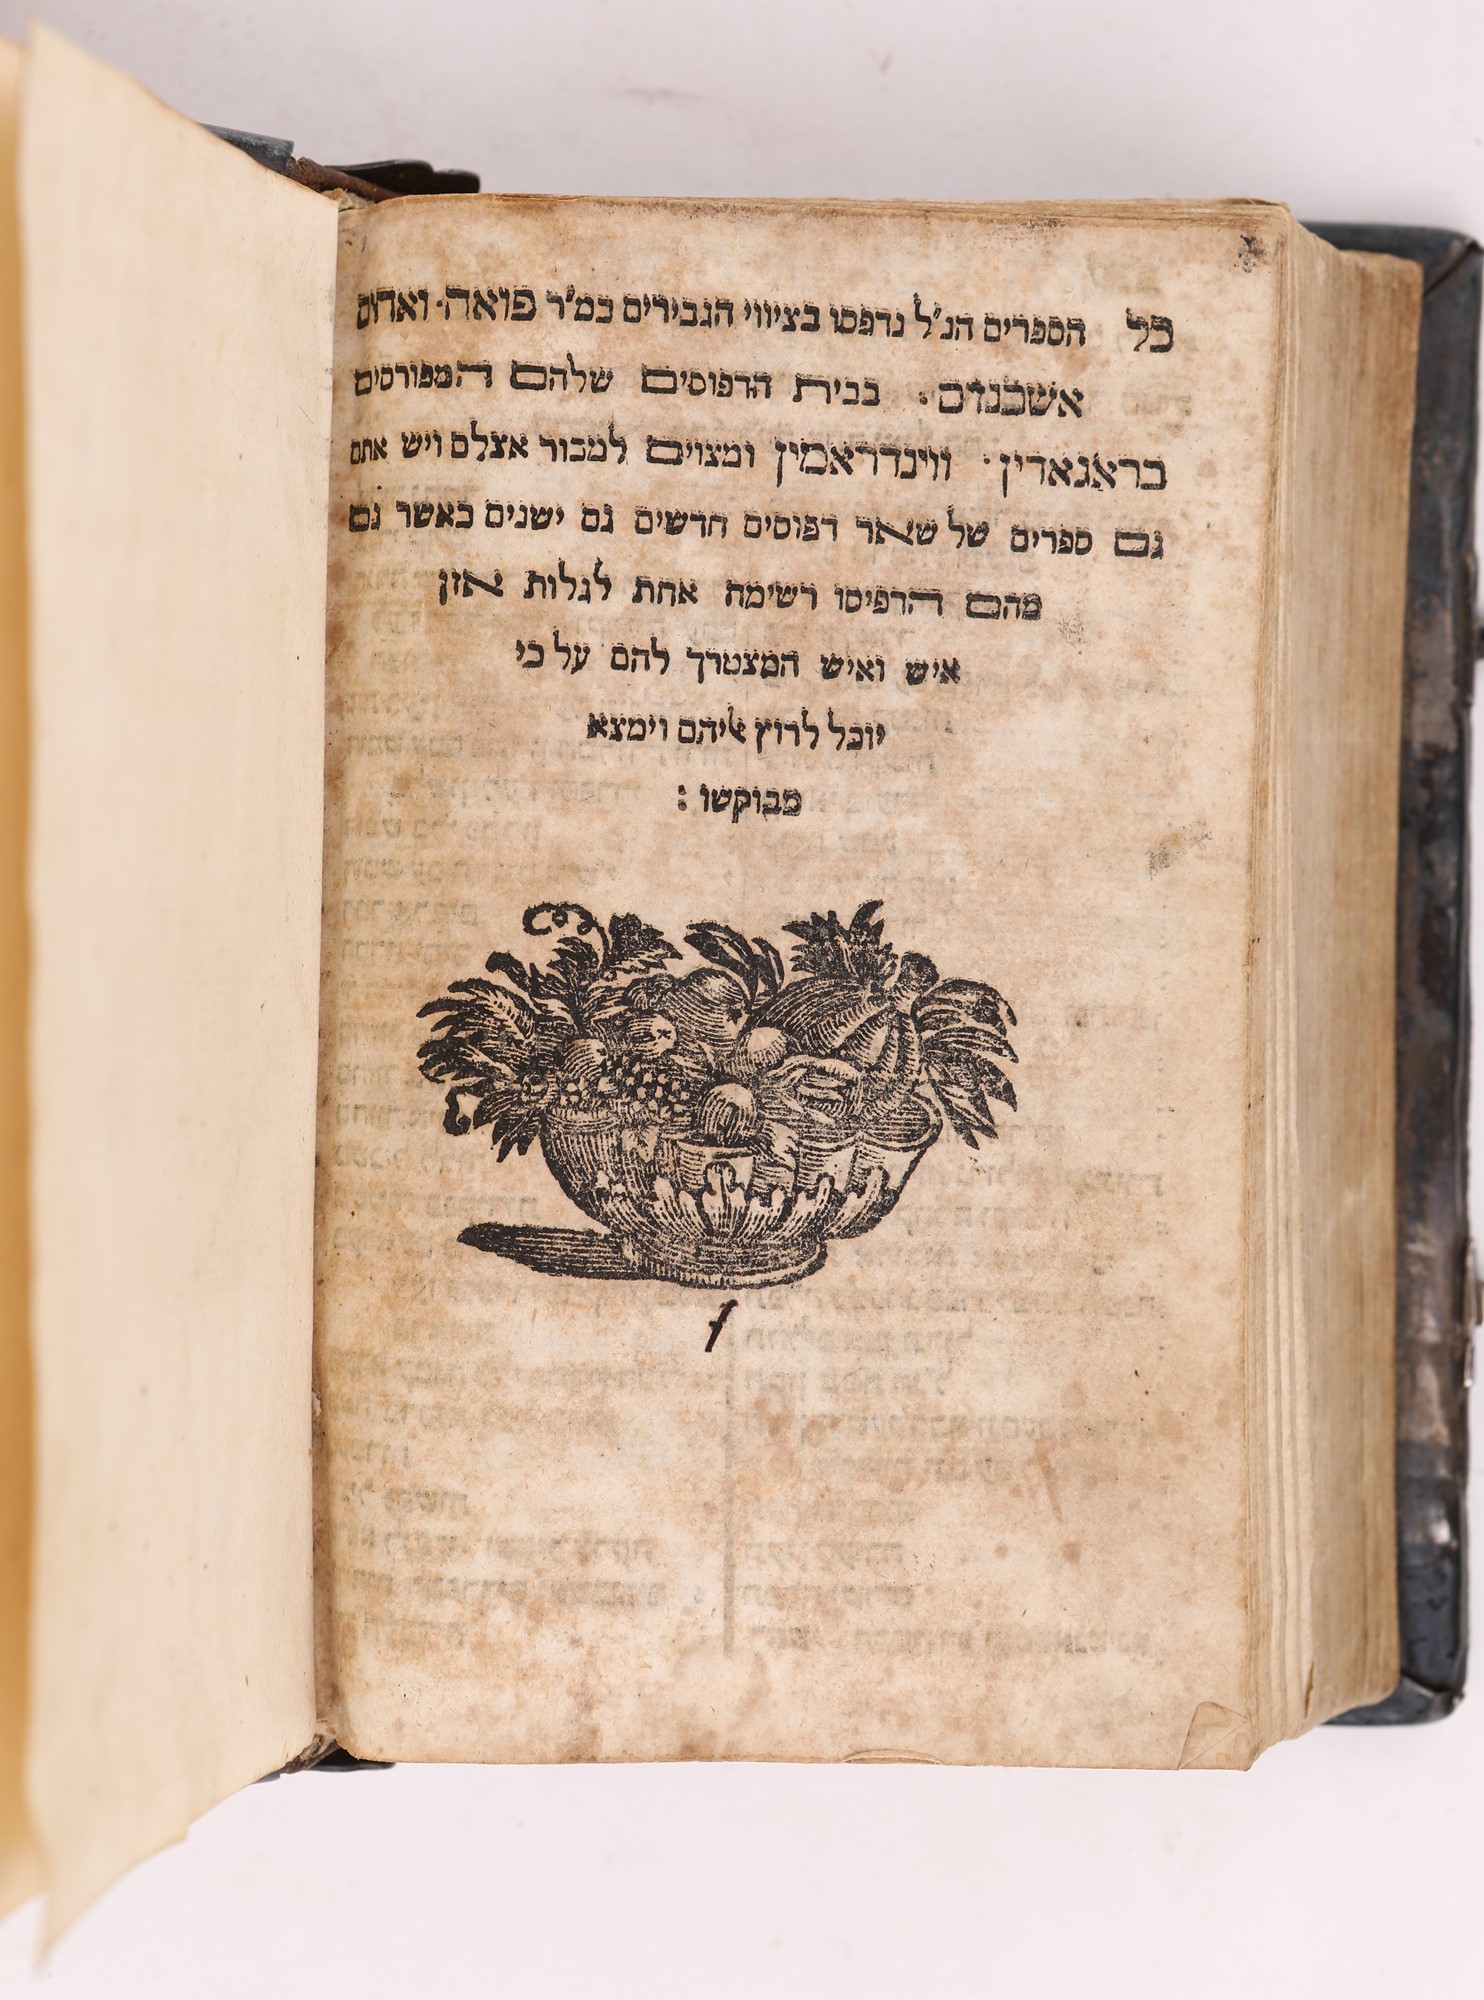 כל הספרים הנ"ל נדפסו בציווי הגבירים כמ"ר פואה. ואדום
אשכנזים. בבית הדפוסים שלהם המפורסים
בראגאדין. ווינדראמין ומצוים למכור אצלם ויש אתם
גם ספרים של שאר דפוסים חדשים גם ישנים כאשר גם
מהם הדפיסו רשימה אחת לגלות אזן
איש ואיש המצטרך להם על כי
יוכל לרוץ אליהם וימצא
מבוקשו :